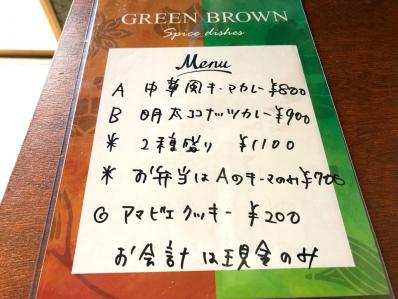 GREEN BROWN
Spice dishes
Menu
A 中華風キーマカレー ¥800
B 明太ココナッツカレー ¥900
* 2種盛り ¥1100
* お弁当はAのキーマのみ ¥700
◎ アマビエクッキー ¥200
お会計は現金のみ